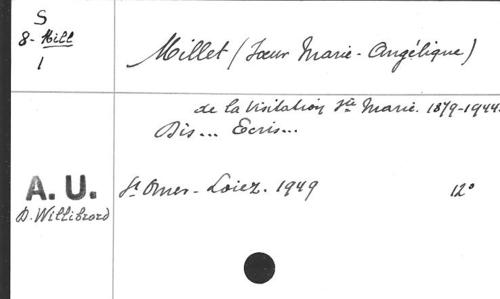 S
8-Mill
1
Millet (Sœur Marie-Angélique)
de la Visitation Ste Marie. 1879-1944.
Dis... Ecris...
A.U.
D. Willibrord
St Omer - Loiez. 1949 12°